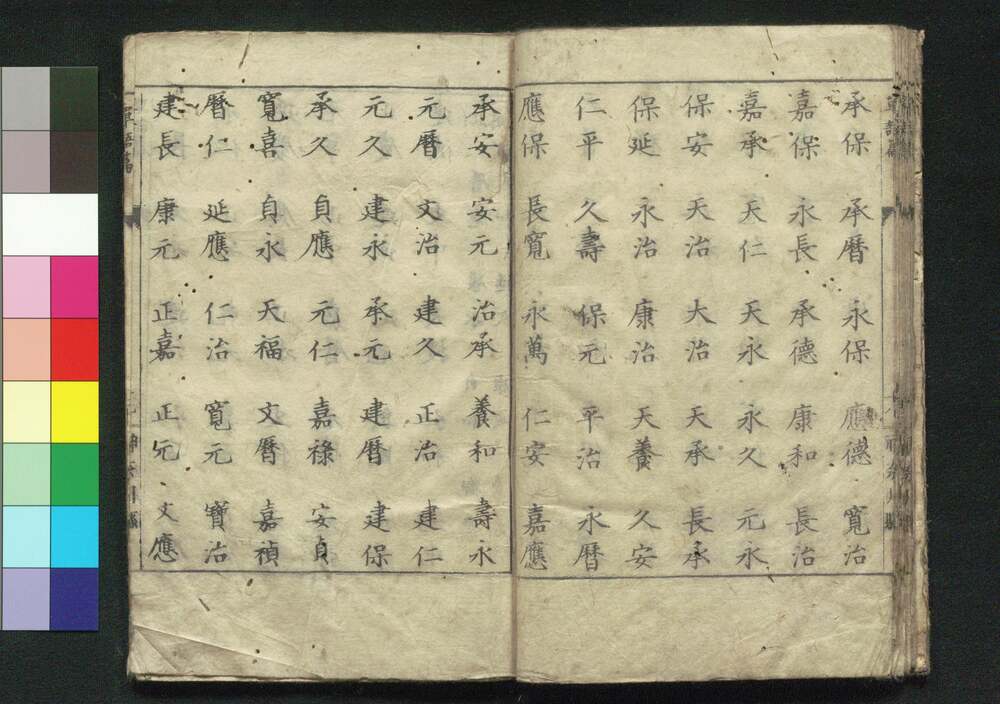 承保 承曆 永保 應德 寬治
嘉保 永長 承德 康和 長治
嘉承 天仁 天永 永久 元永
保安 天治 大治 天承 長承
保延 永治 康治 天養 久安
仁平 久壽 保元 平治 永曆
應保 長寬 永萬 仁安 嘉應
承安 安元 治承 養和 壽永
元曆 文治 建久 正治 建仁
元久 建永 承元 建曆 建保
承久 貞應 元仁 嘉祿 安貞
寬喜 貞永 天福 文曆 嘉禎
曆仁 延應 仁治 寬元 寶治
建長 康元 正嘉 正元 文應
單語篇